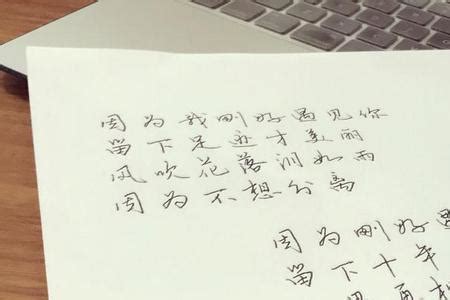 因为我刚好遇见你
留下足迹才美丽
风吹花落泪如雨
因为不想分离
因为刚好遇
留下十年